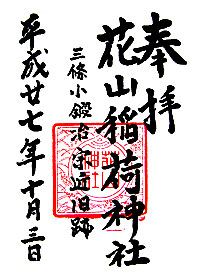 奉拝
花山稲荷神社
三條小鍛冶宗近旧跡
平成廿七年十月三日